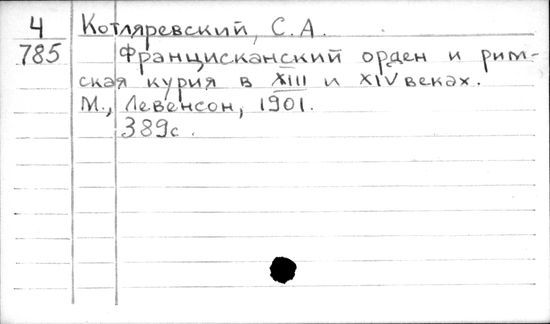 4 Котляревский, С. А.
785 Францисканский орден и рим-
ская курия в XIII и XIV веках.
М., Левенсон, 1901.
389с.